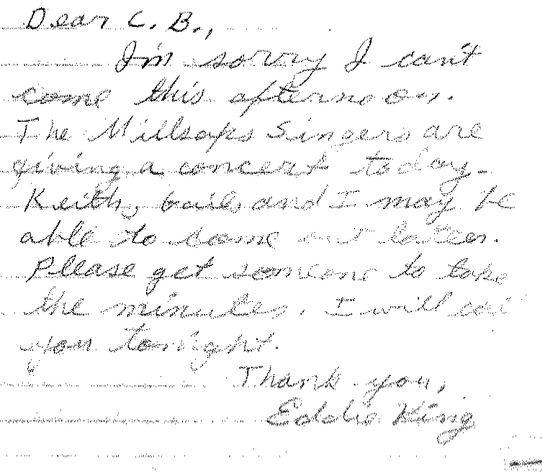 Dear C. B.,
I'm sorry I can't
come this afternoon.
The Millsaps Singers are
giving a concert today.
Keith, Gail, and I may be
able to come out later.
Please get someone to take
the minutes. I will call
you tonight.
Thank you,
Eddie King